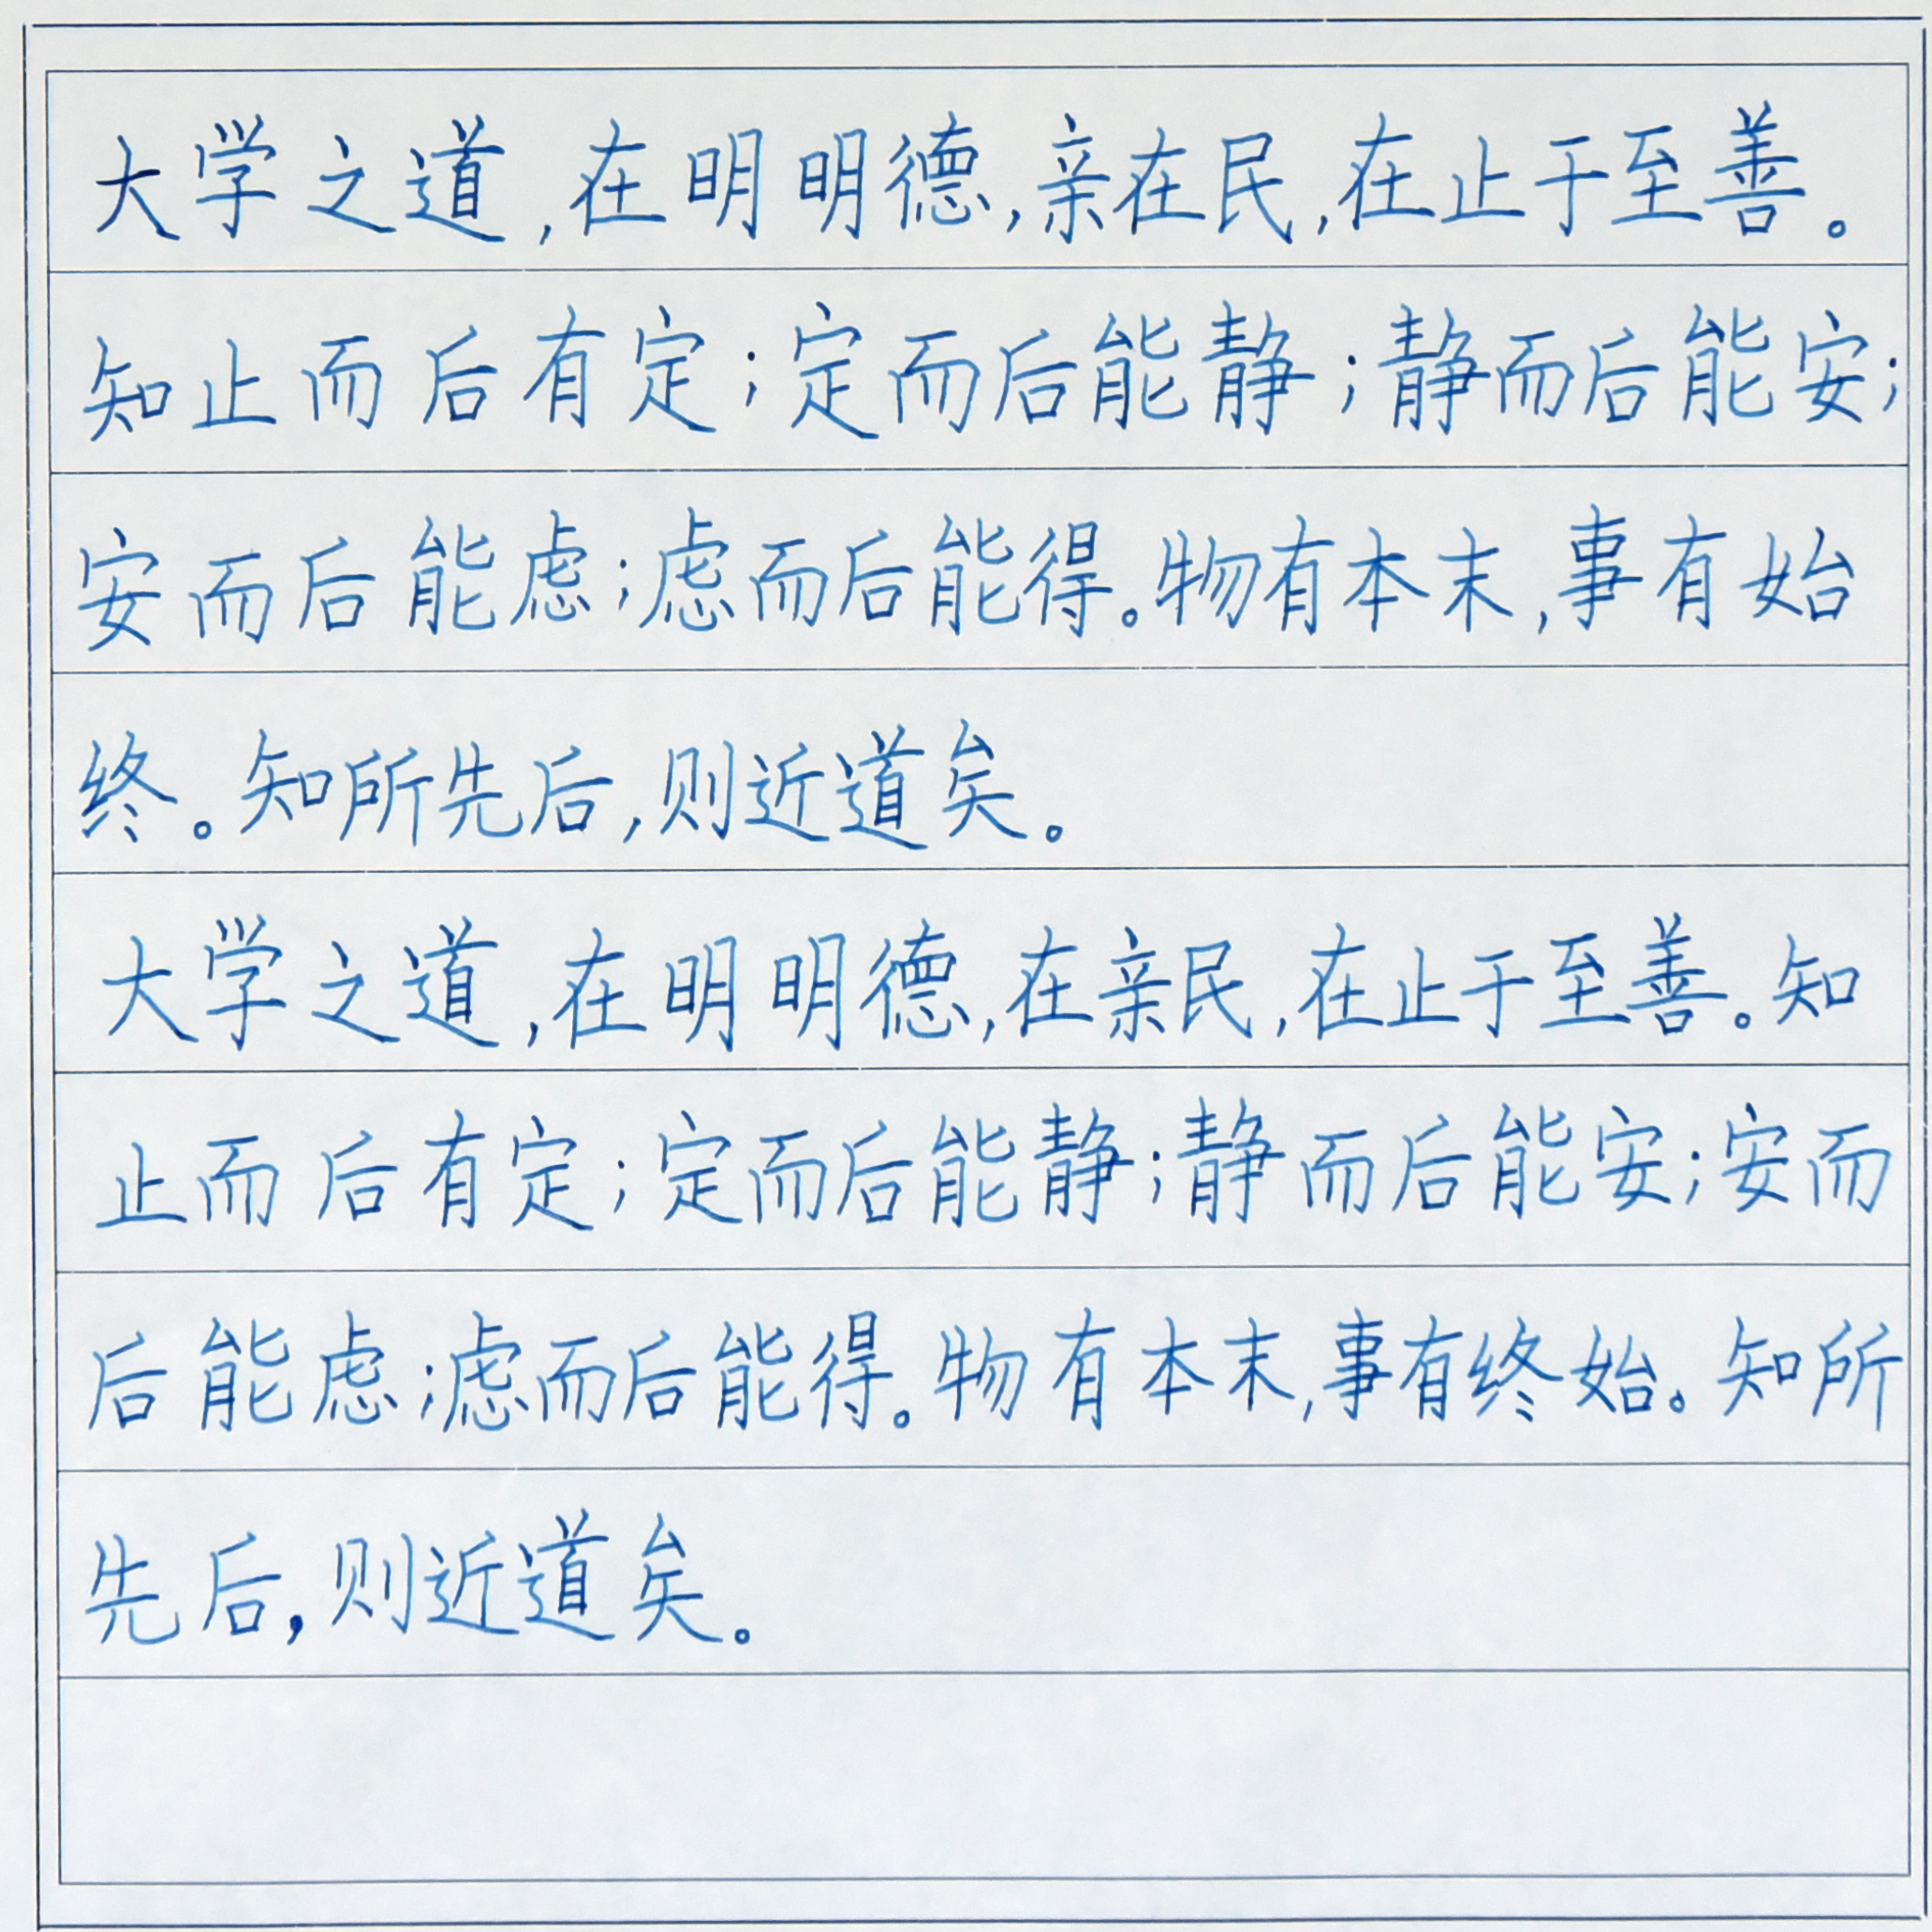 大学之道,在明明德,亲在民,在止于至善。
知止而后有定;定而后能静;静而后能安;
安而后能虑;虑而后能得。物有本末,事有始
终。知所先后,则近道矣。
大学之道,在明明德,在亲民,在止于至善。知
止而后有定;定而后能静;静而后能安;安而
后能虑;滤而后能得。物有本末,事有终始。知所
先后,则近道矣。